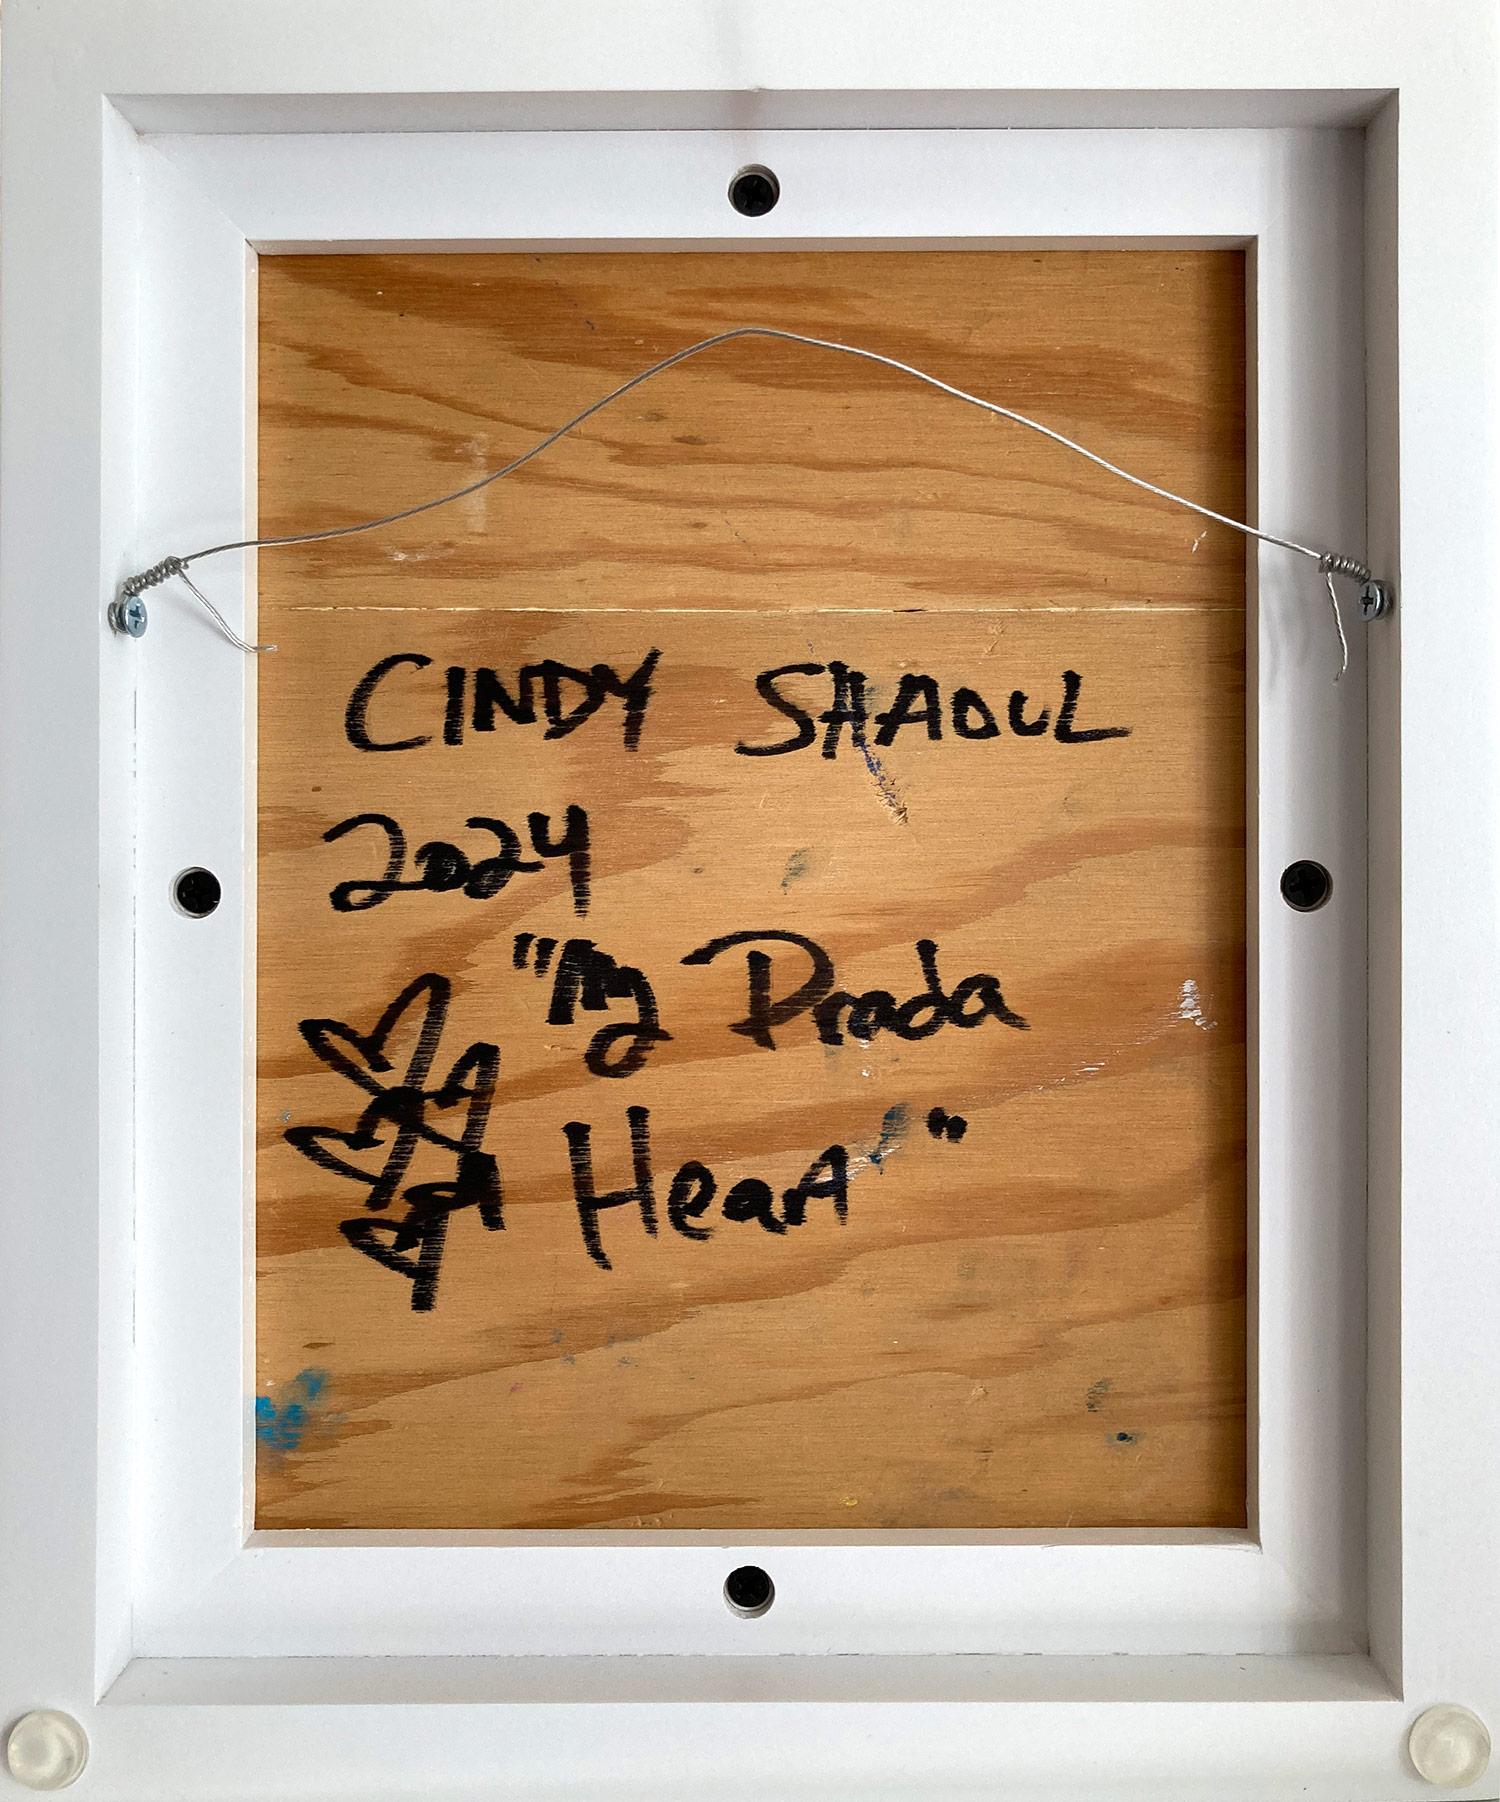 CINDY SHAOUL
2024
"My Prada
Heart"